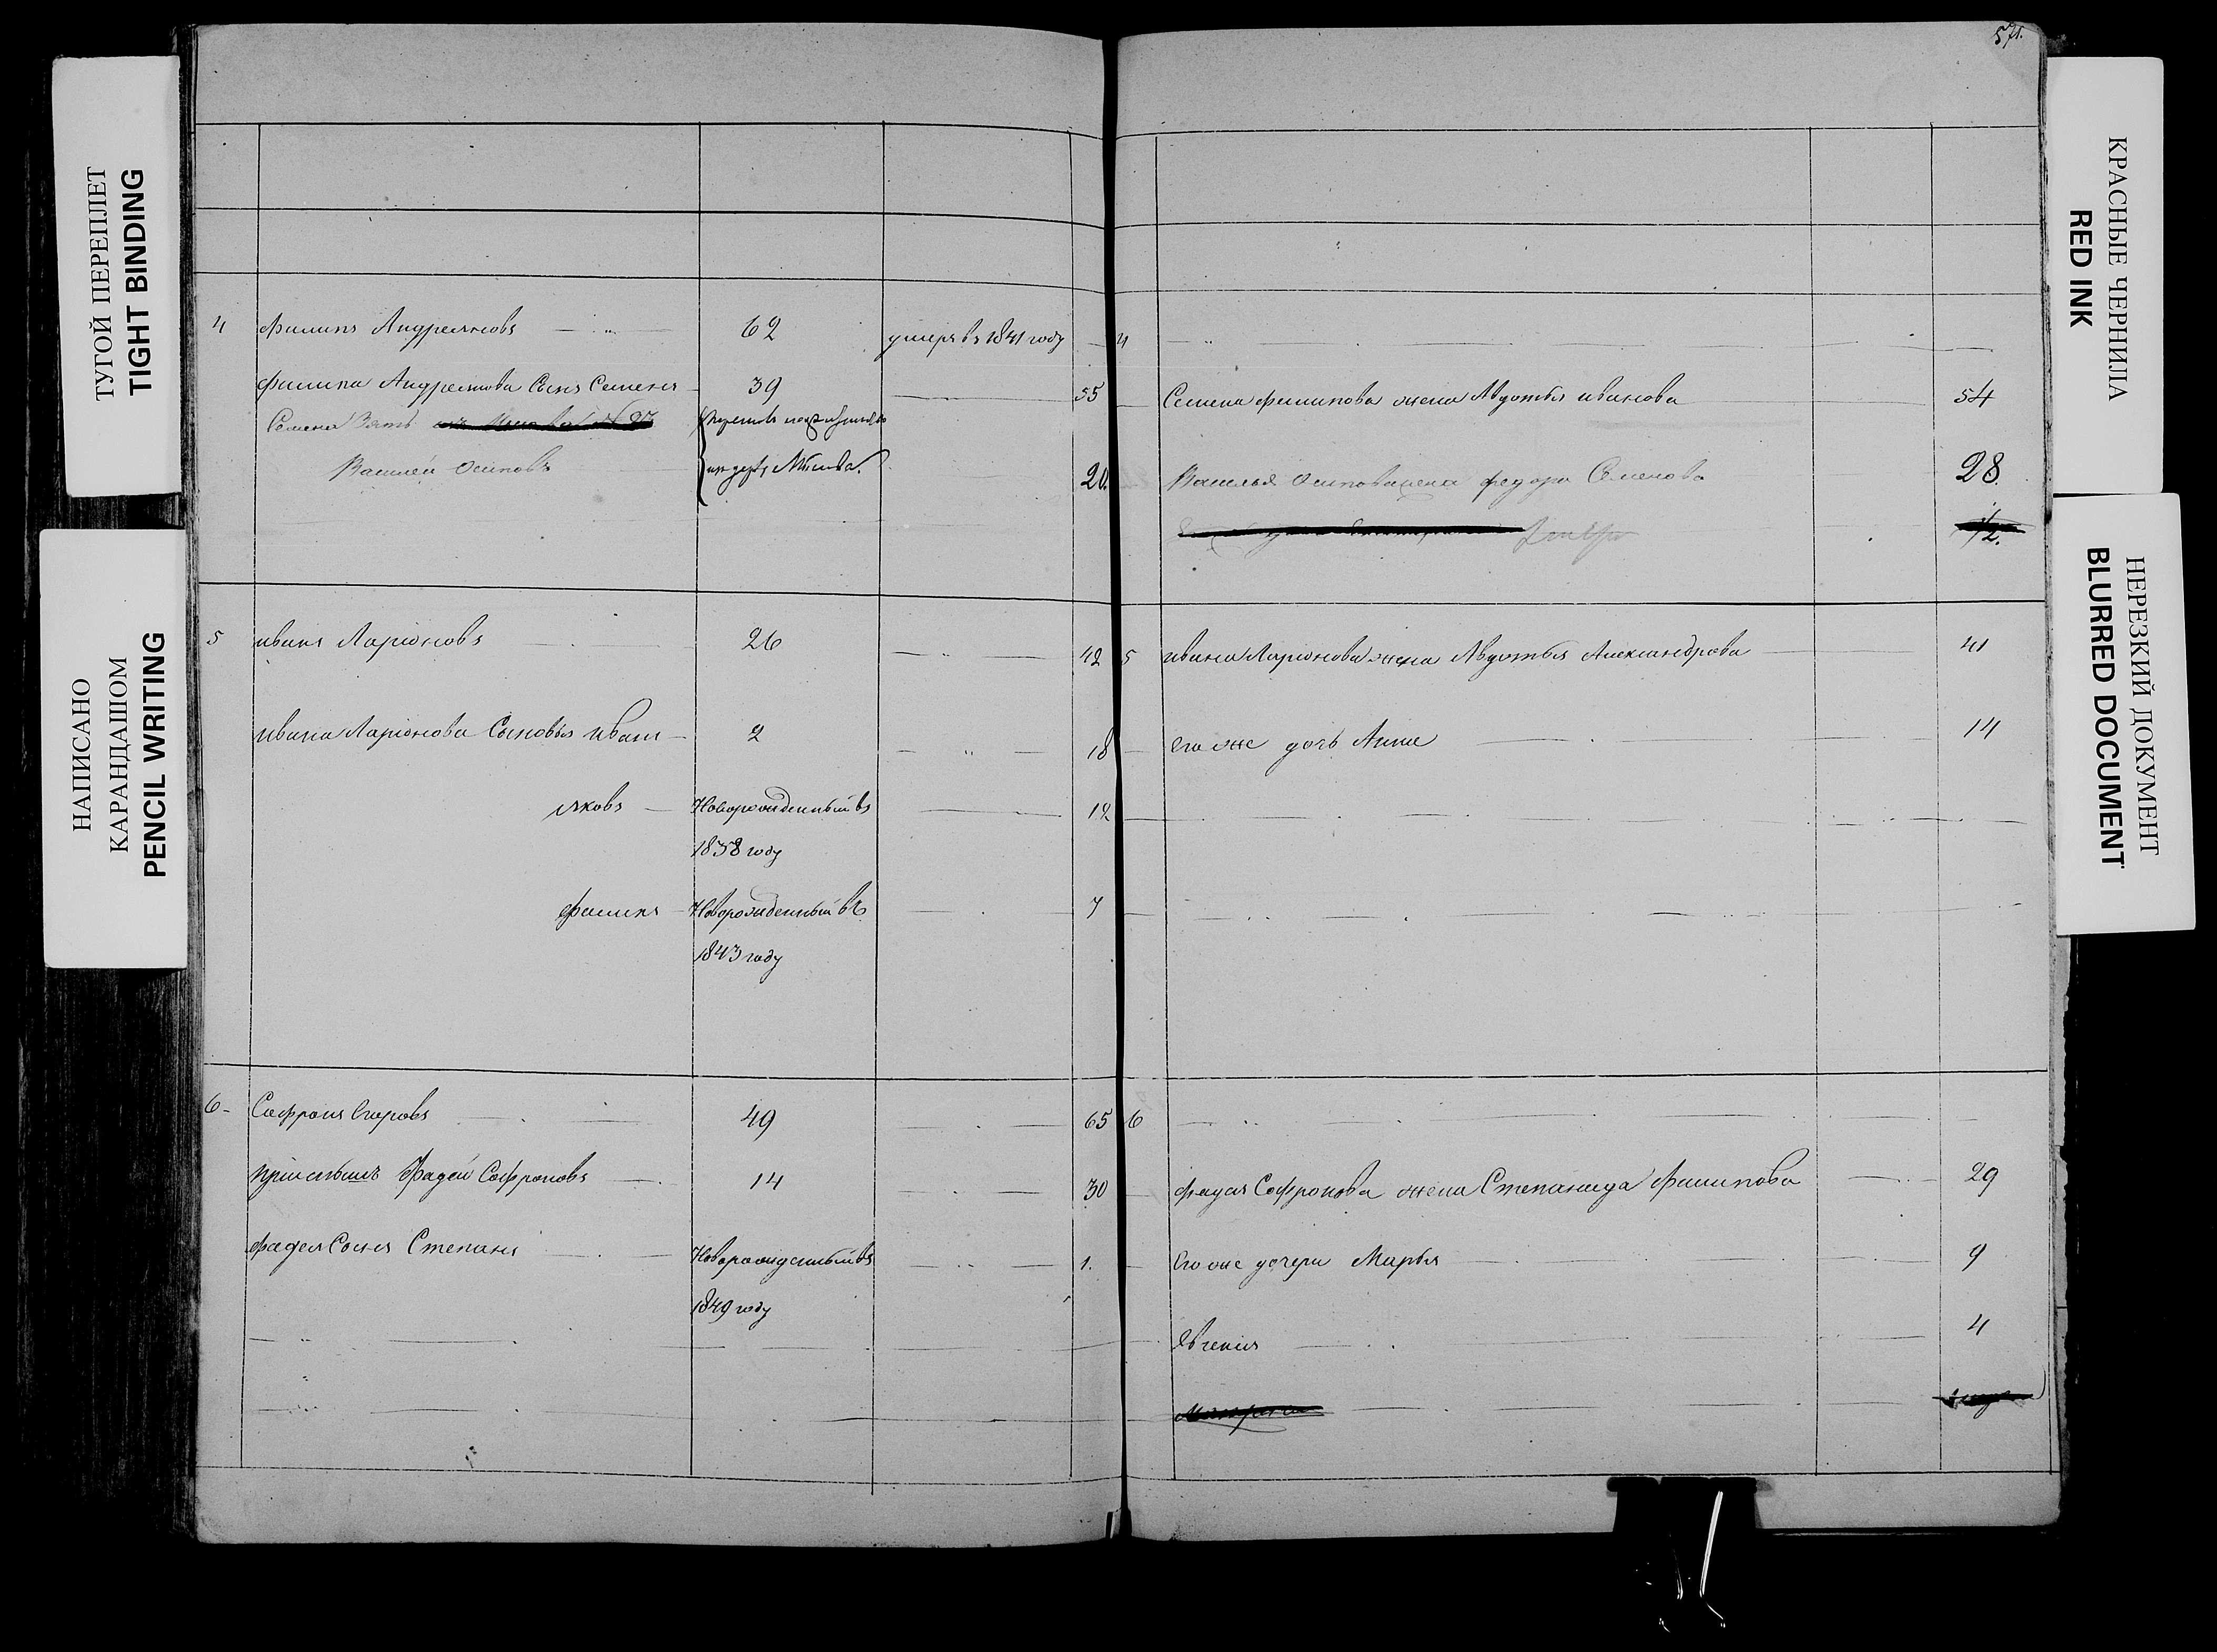 571.
ТУГОЙ ПЕРЕПЛЕТ
TIGHT BINDING
НАПИСАНО
КАРАНДАШОМ
PENCIL WRITING
4 Филипъ Андреяновъ 62 умеръ въ 1841 году
Филипа Андреянова Сынъ Семенъ 39 55
Семена Зять
Василей Осиповъ 20.
5 иванъ Ларiоновъ 26 42
ивана Ларiонова Сыновья иванъ 2 18
яковъ Новорожденный въ 12
1838 году
Филипъ Новорожденный въ 7
1843 году
6 Софронъ Егоровъ 49 65
прiемышъ Фадей Софроновъ 14 30
Фадея Сынъ Степанъ Новорожденный въ 1.
1849 году
4
Семена Филипова жена Авдотья иванова 54
Василья Осипова жена федора Семенова 28.
12.
5 ивана Ларiонова жена Авдотья Александрова 41
его же дочь Анна 14
6
Фадея Софронова жена Степанида Филипова 29
Его же дочери Марья 9
Евгения 4
КРАСНЫЕ ЧЕРНИЛА
RED INK
НЕРЕЗКИЙ ДОКУМЕНТ
BLURRED DOCUMENT